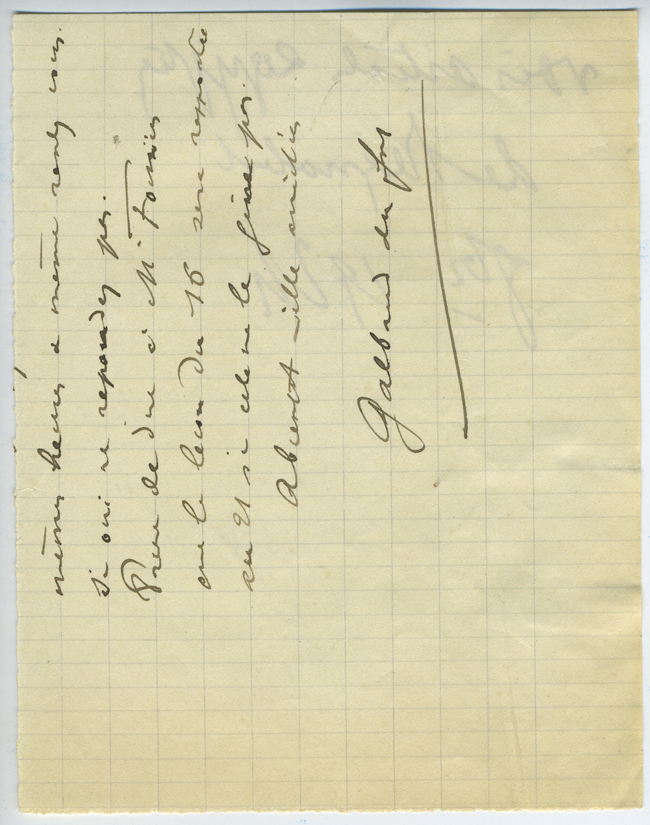 mêmes heures et même rendez vous.
Si oui ne repondez pas.
Prière de dire à Mr Fournier
que la leçon du 16 sera reportée
au 21 si cela ne le gêne pas.
A bientôt mille amitiés
Galbrund du Fos